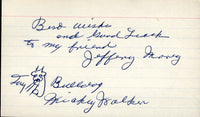 Best wishes
and Good Luck
to my friend
Jeffery Morey
Toy Bulldog
Mickey Walker